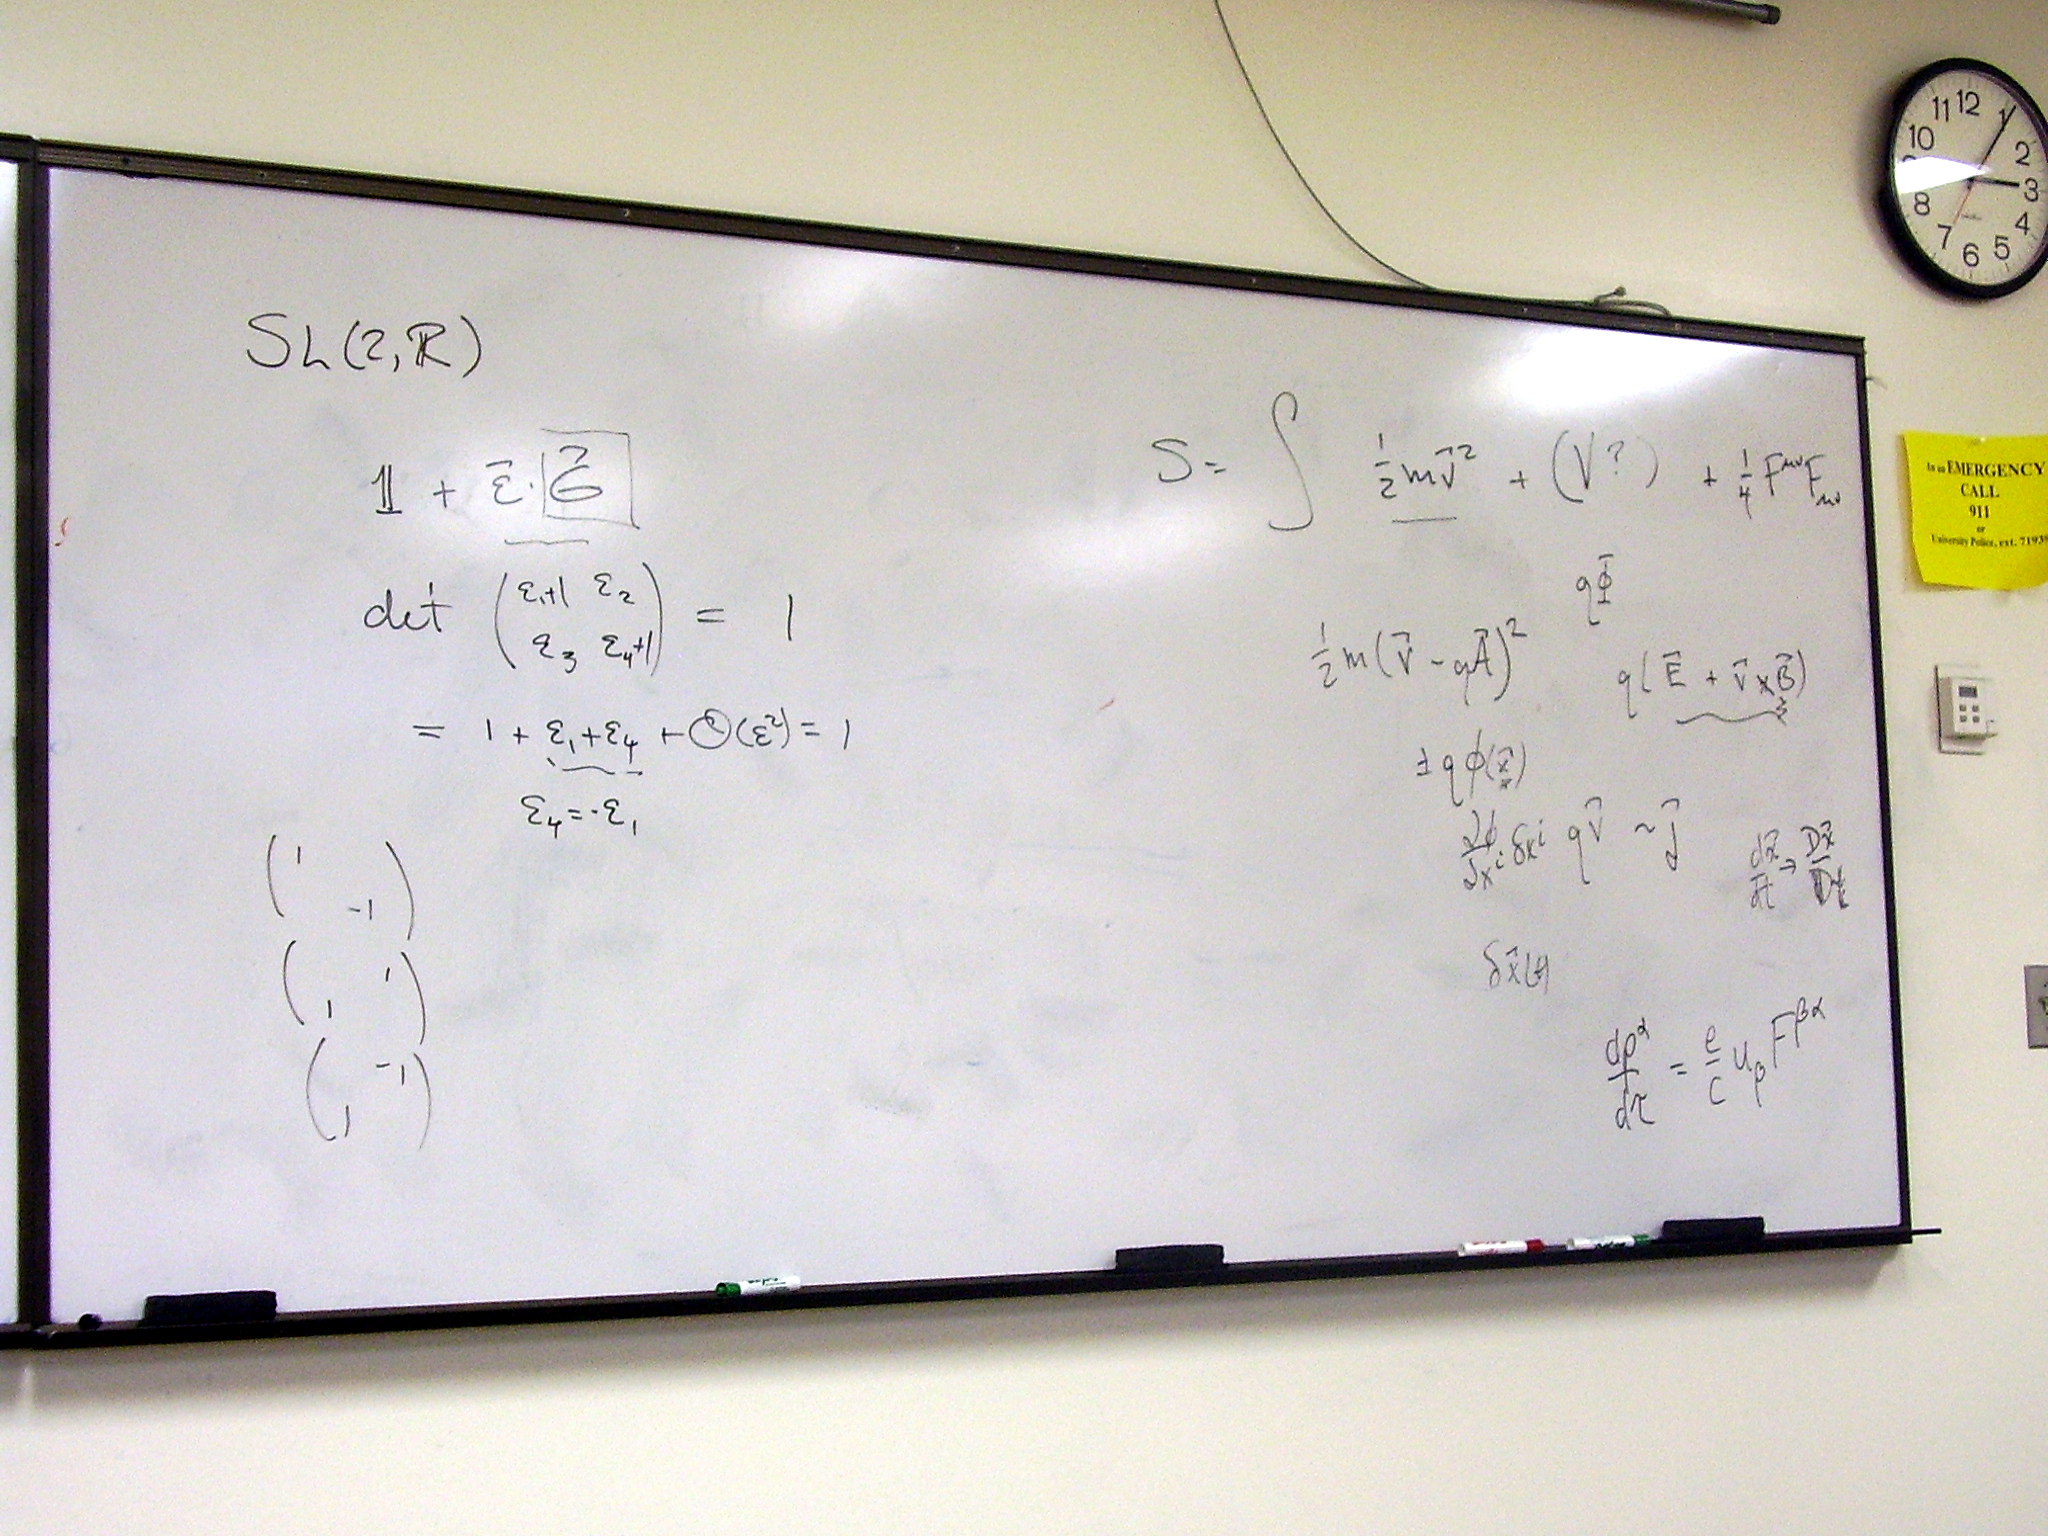 SL(2,ℝ)
𝟙 + ε⃗·G⃗
det ( ε₁+1 ε₂
ε₃ ε₄+1 ) = 1
= 1 + ε₁+ε₄ + O(ε²) = 1
ε₄=-ε₁
( 1
-1 )
( 1
1 )
( -1
1 )
S = ∫ ½mv⃗² + (V?) + ¼ F^μν F_μν
qΦ
½m(v⃗ - qA⃗)²
q(E⃗ + v⃗×B⃗)
± qϕ(x⃗)
∂ϕ/∂xⁱ δxⁱ qv⃗ ~ j⃗
dx⃗/dt → Dx⃗/Dt
δx⃗(t)
dp^α/dτ = e/c u_β F^βα
11 12 1
10 2
3
8 4
7 6 5
In an EMERGENCY
CALL
911
or
University Police, ext. 7193